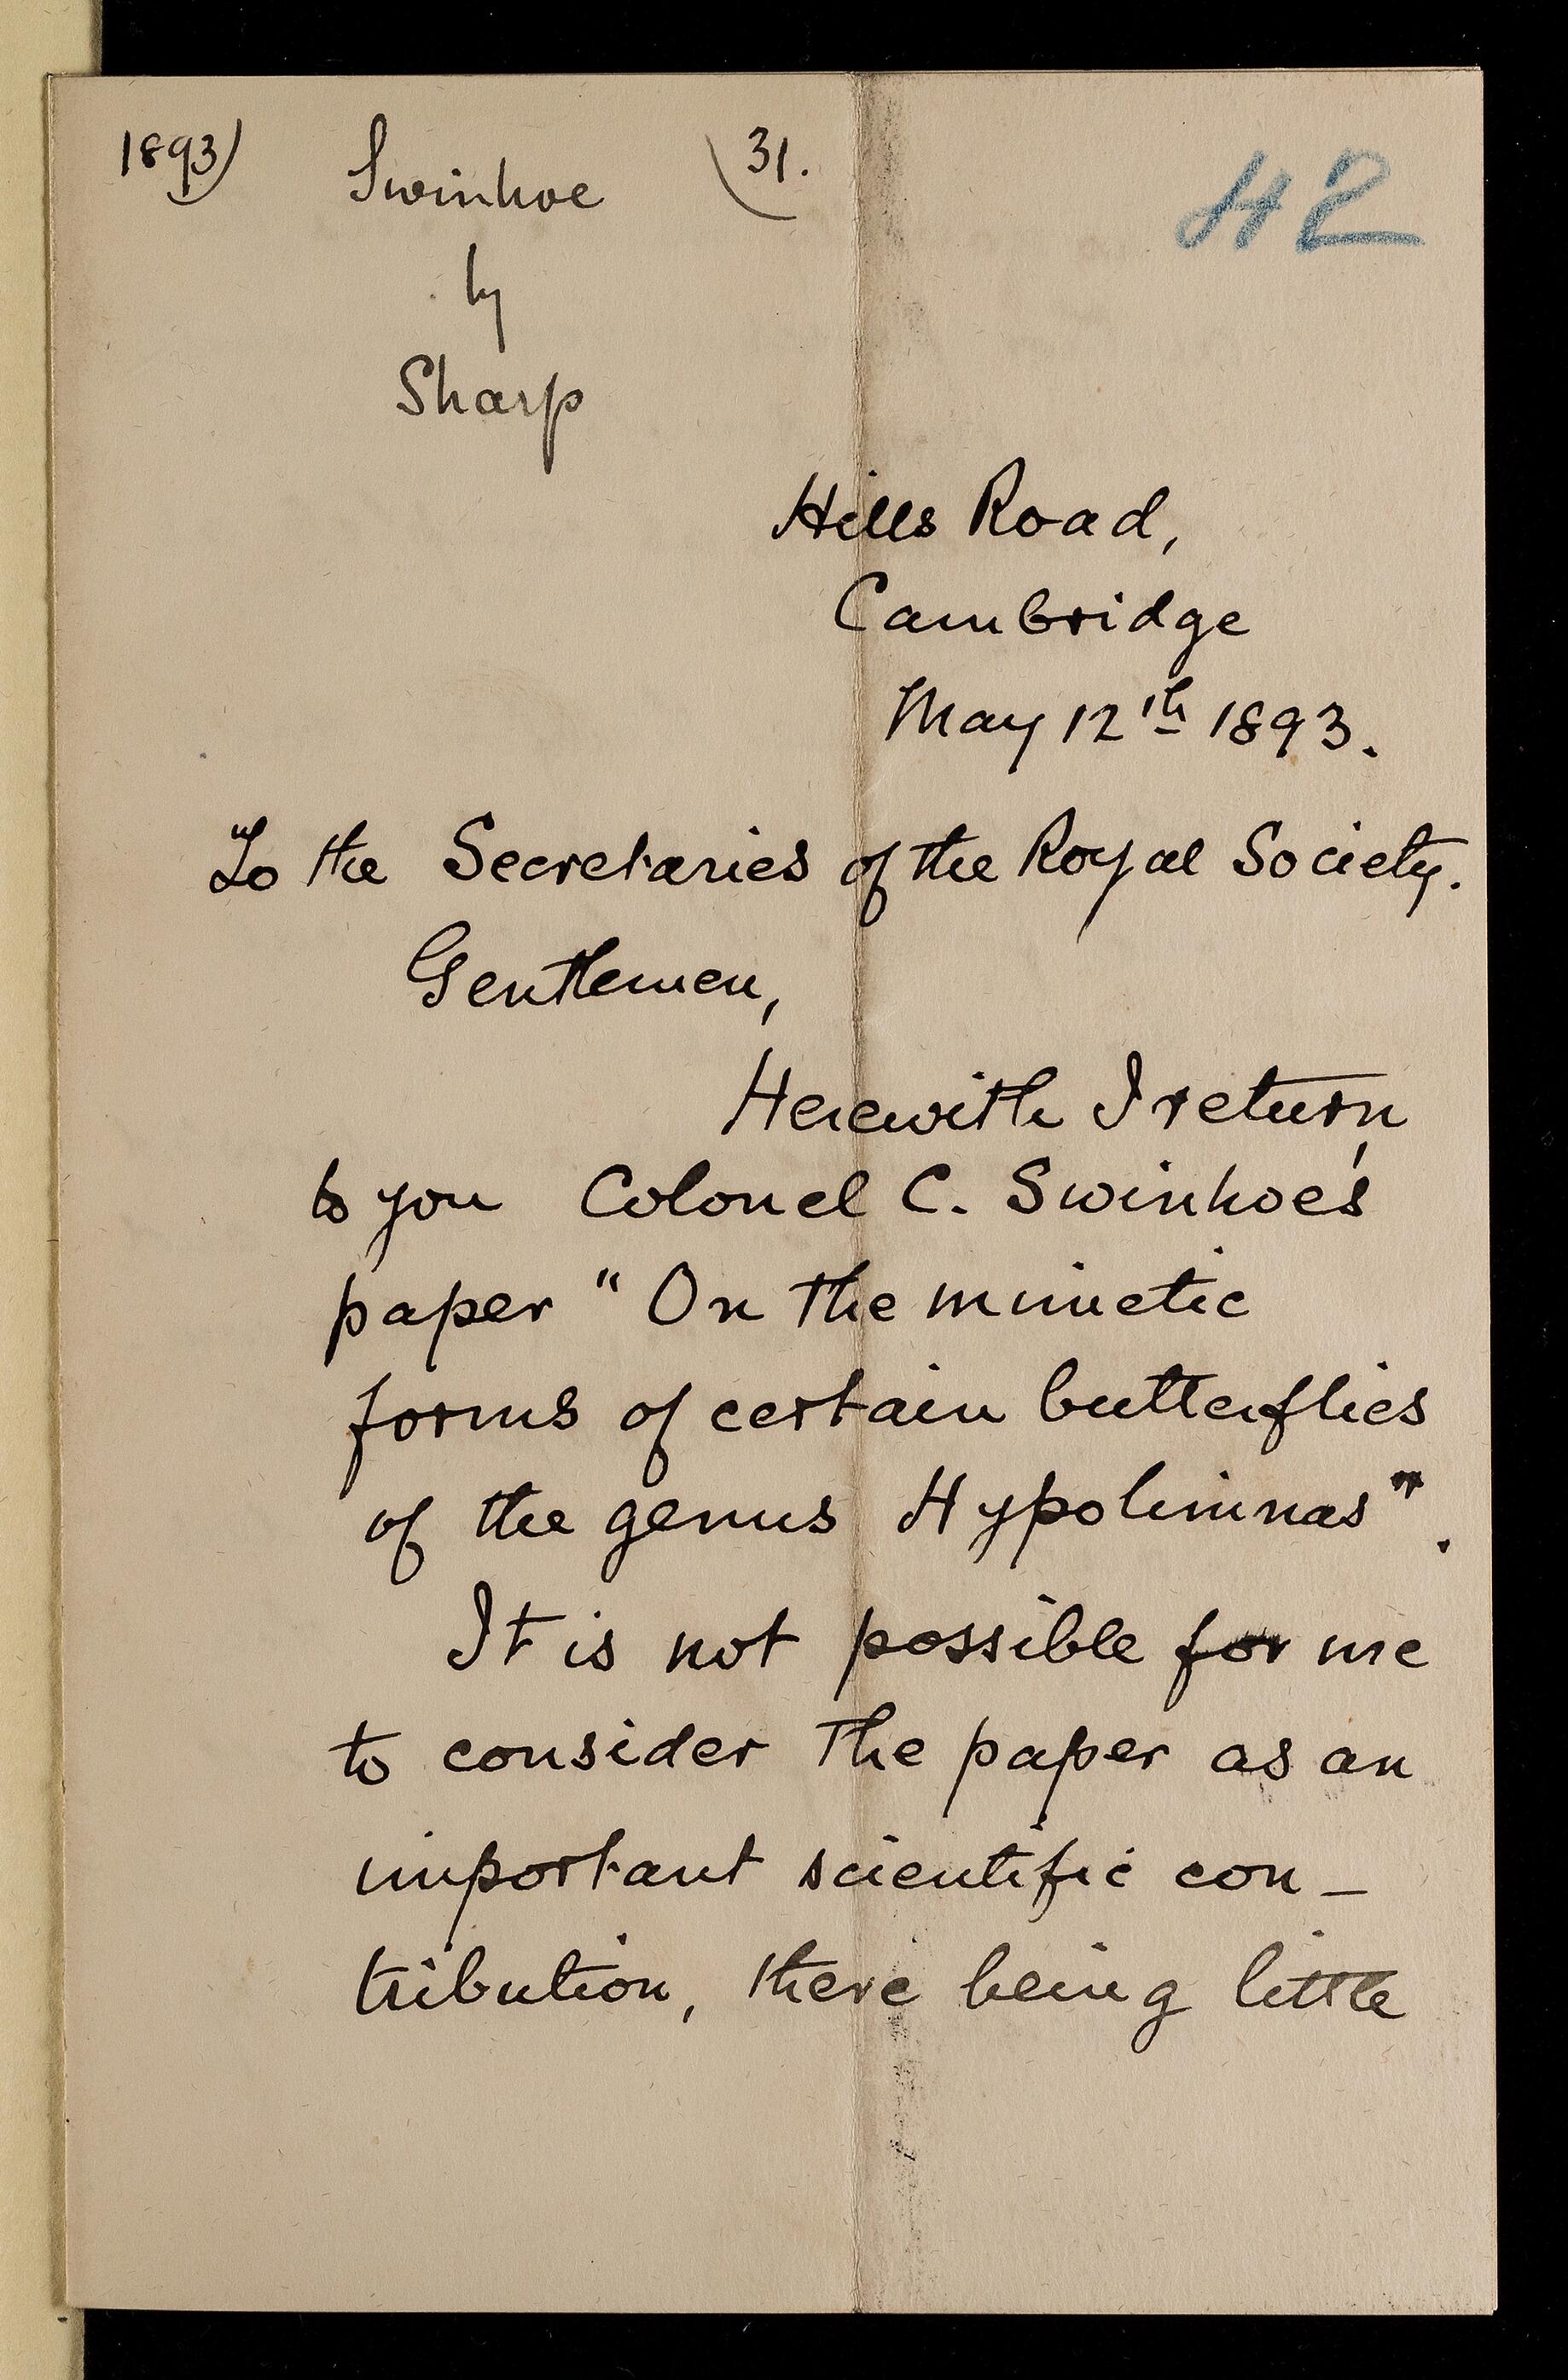 1893) Swinhoe (31.
42
by
Sharp
Hills Road,
Cambridge
May 12th 1893.
To the Secretaries of the Royal Society.
Gentlemen,
Herewith I return
to you Colonel C. Swinhoe's
paper "On the mimetic
forms of certain butterflies
of the genus Hypolimnas".
It is not possible for me
to consider the paper as an
important scientific con-
tribution, there being little